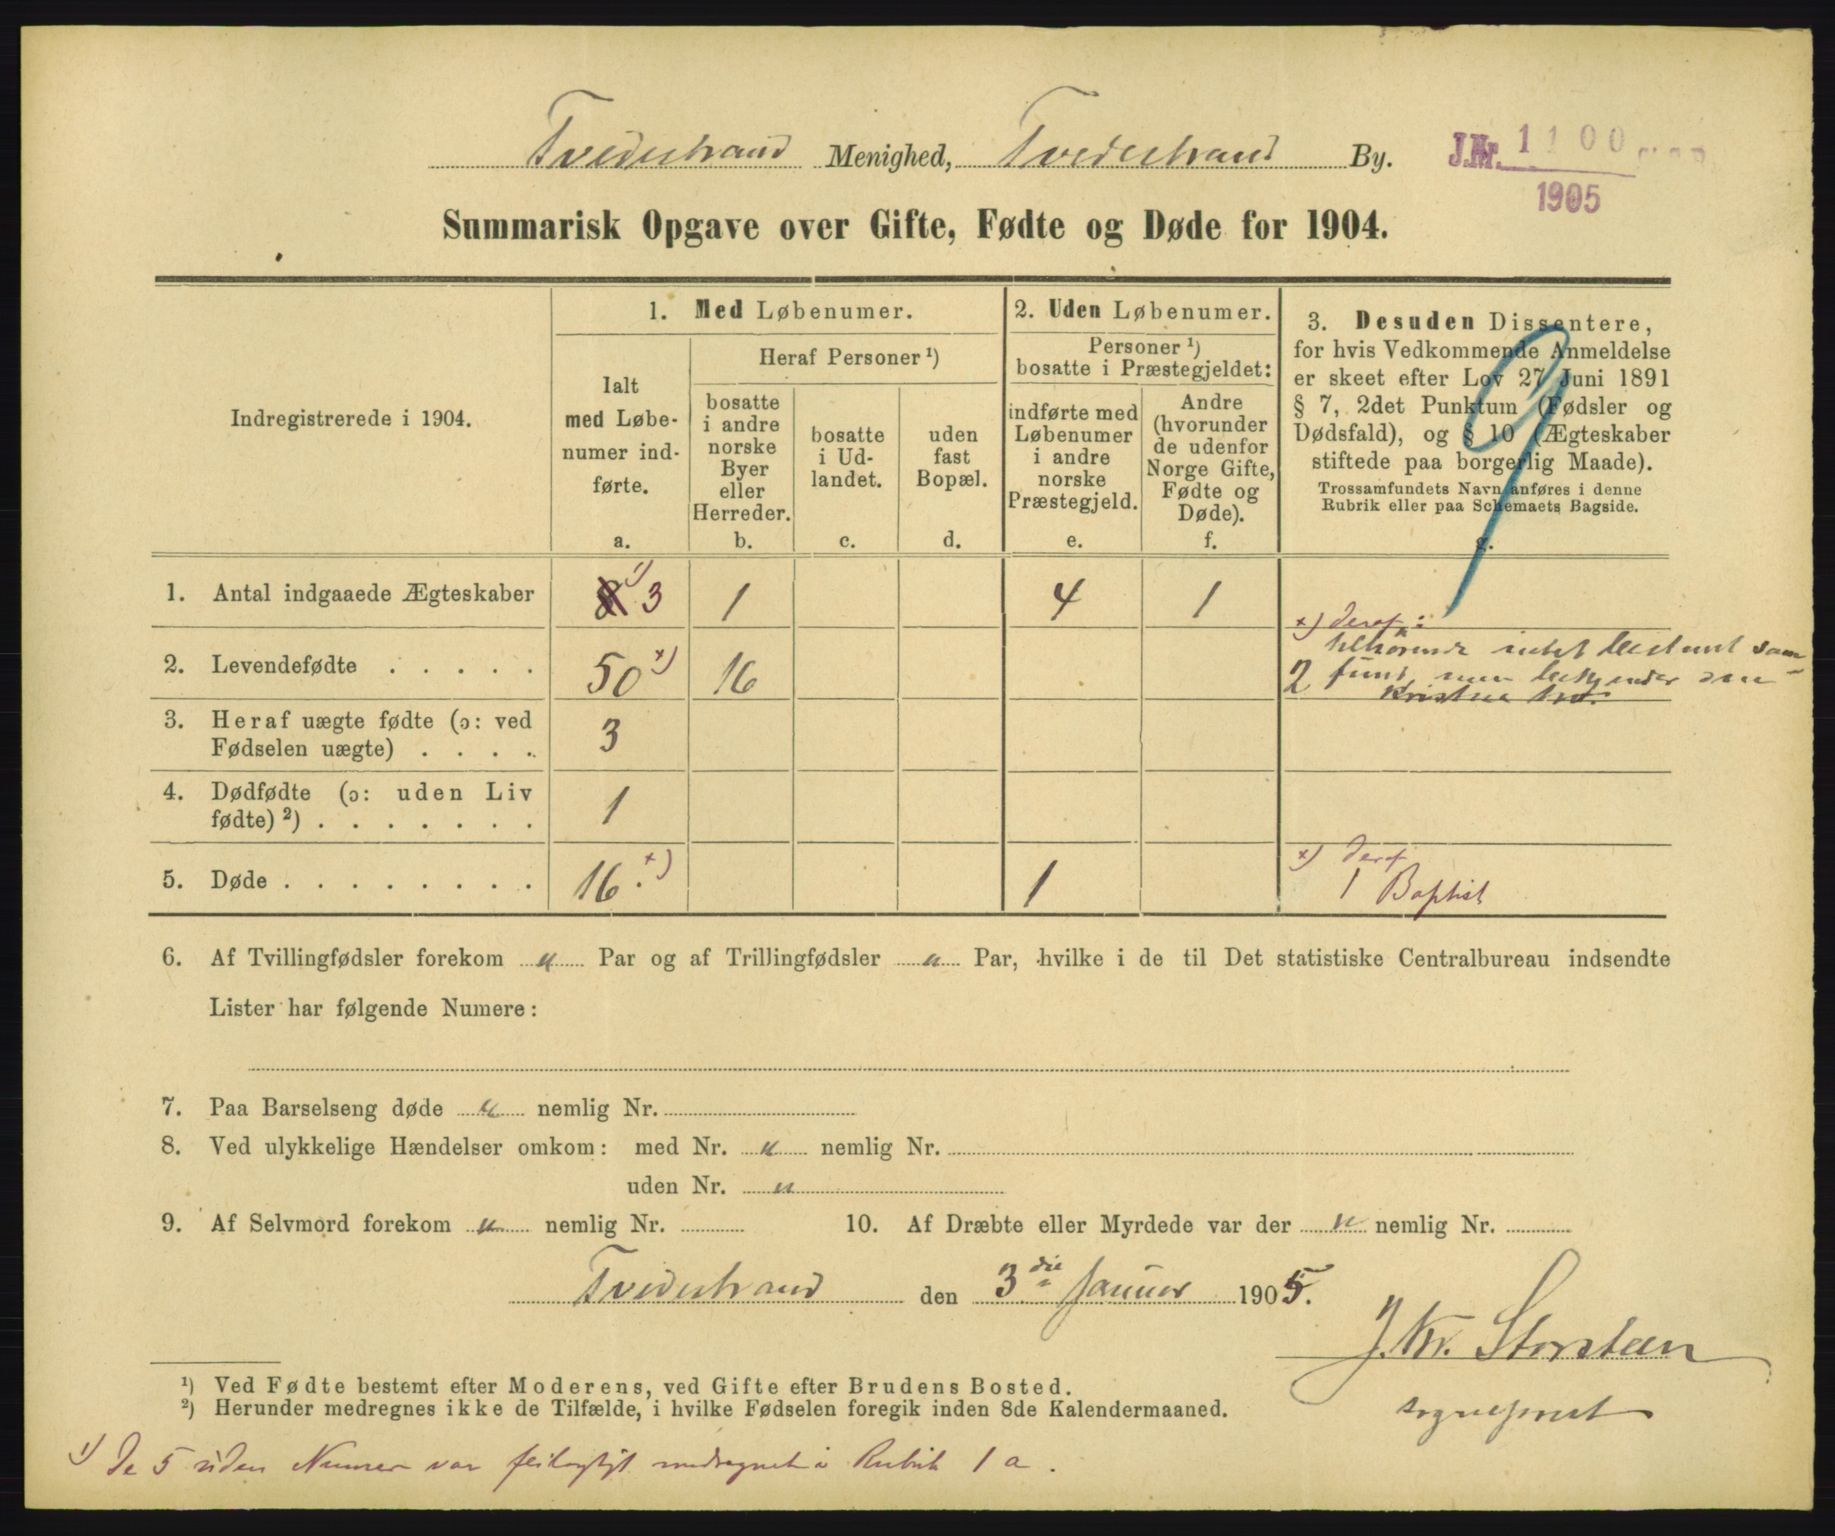 Tvedestrand Menighed, Tvedestrand By.
J.Nr. 1100
1905
Summarisk Opgave over Gifte, Fødte og Døde for 1904.
Indregistrerede i 1904.
1. Med Løbenumer.
Ialt
med Løbe-
numer ind-
førte.
a.
Heraf Personer ¹)
bosatte
i andre
norske
Byer
eller
Herreder.
b.
bosatte
i Ud-
landet.
c.
uden
fast
Bopæl.
d.
2. Uden Løbenumer.
Personer ¹)
bosatte i Præstegjeldet:
indførte med
Løbenumer
i andre
norske
Præstegjeld.
e.
Andre
(hvorunder
de udenfor
Norge Gifte,
Fødte og
Døde).
f.
3. Desuden Dissentere,
for hvis Vedkommende Anmeldelse
er skeet efter Lov 27 Juni 1891
§ 7, 2det Punktum (Fødsler og
Dødsfald), og § 10 (Ægteskaber
stiftede paa borgerlig Maade).
Trossamfundets Navn anføres i denne
Rubrik eller paa Schemaets Bagside.
g.
9
1. Antal indgaaede Ægteskaber 8 ¹) 3 1 4 1
×) deraf:
2. Levendefødte . . . . . 50 ×) 16
2 tilhørende intet bestemt sam-
fund, men bekjender sin
Kristne tro.
3. Heraf uægte fødte (ɔ: ved
Fødselen uægte) . . . . 3
4. Dødfødte (ɔ: uden Liv
fødte) ²) . . . . . . . 1
5. Døde . . . . . . . . . 16. ×) 1
×) deraf
1 Baptist
6. Af Tvillingfødsler forekom " Par og af Trillingfødsler " Par, hvilke i de til Det statistiske Centralbureau indsendte
Lister har følgende Numere:
7. Paa Barselseng døde " nemlig Nr.
8. Ved ulykkelige Hændelser omkom: med Nr. " nemlig Nr.
uden Nr. "
9. Af Selvmord forekom " nemlig Nr. 10. Af Dræbte eller Myrdede var der " nemlig Nr.
Tvedestrand den 3die Januar 1905.
J. Kr. Storsteen
sogneprest
¹) Ved Fødte bestemt efter Moderens, ved Gifte efter Brudens Bosted.
²) Herunder medregnes ikke de Tilfælde, i hvilke Fødselen foregik inden 8de Kalendermaaned.
¹) De 5 uden Numer var feilagtigt medregnet i Rubrik 1 a.